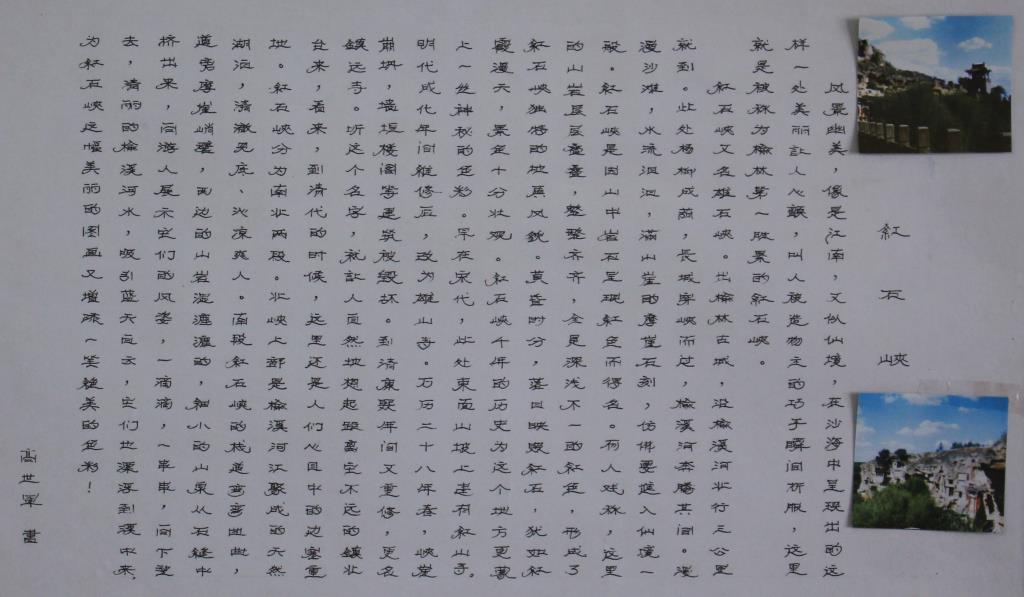 紅石峽
风景幽美,像是江南,又似仙境,在沙海中呈现出的这
样一处美丽让人心颤,叫人被造物主的巧手瞬间折服,这里
就是被称为榆林第一胜景的紅石峡。
紅石峡又名雄石峡。出榆林古城,沿榆溪河北行三公里
就到。此处杨柳成荫,長城穿峡而过,榆溪河奔腾其间。漫
漫沙滩,水流汩汩,滿山崖的摩崖石刻,仿佛要进入仙境一
般。紅石峡是因山中岩石呈现紅色而得名。有人戏称,这里
的山岩层层叠叠,整整齐齐,全是深浅不一的紅色,形成了
紅石峡独特的地质风貌。黄昏时分,落日映照紅石,犹如紅
霞漫天,景色十分壮观。紅石峡千年的历史为这个地方更蒙
上一丝神秘的色彩。早在宋代,此处東面山坡上建有紅山寺。
明代成化年间維修后,改为雄山寺。万历二十八年春,峡崖
崩坍,墙垣楼阁等建筑被毁坏。到清康熙年间又重修,更名
鎮远寺。听这个名字,就让人自然地想起距离它不远的鎮北
台来,看来,到清代的时候,这里还是人们心目中的边塞重
地。紅石峡分为南北两段。北峡上部是榆溪河江聚成的天然
湖泊,清澈見底、沁凉爽人。南段紅石峡的栈道弯弯曲曲,
道旁摩崖峭壁,两边的山岩湿漉漉的,細小的山泉从石縫中
挤出来,向游人展示它们的风姿,一滴滴,一串串,向下垂
去,清丽的榆溪河水,吸引蓝天白云,它们也深浮到溪中来,
为紅石峡这幅美丽的图画又增添一笔绝美的色彩!
高世军 書